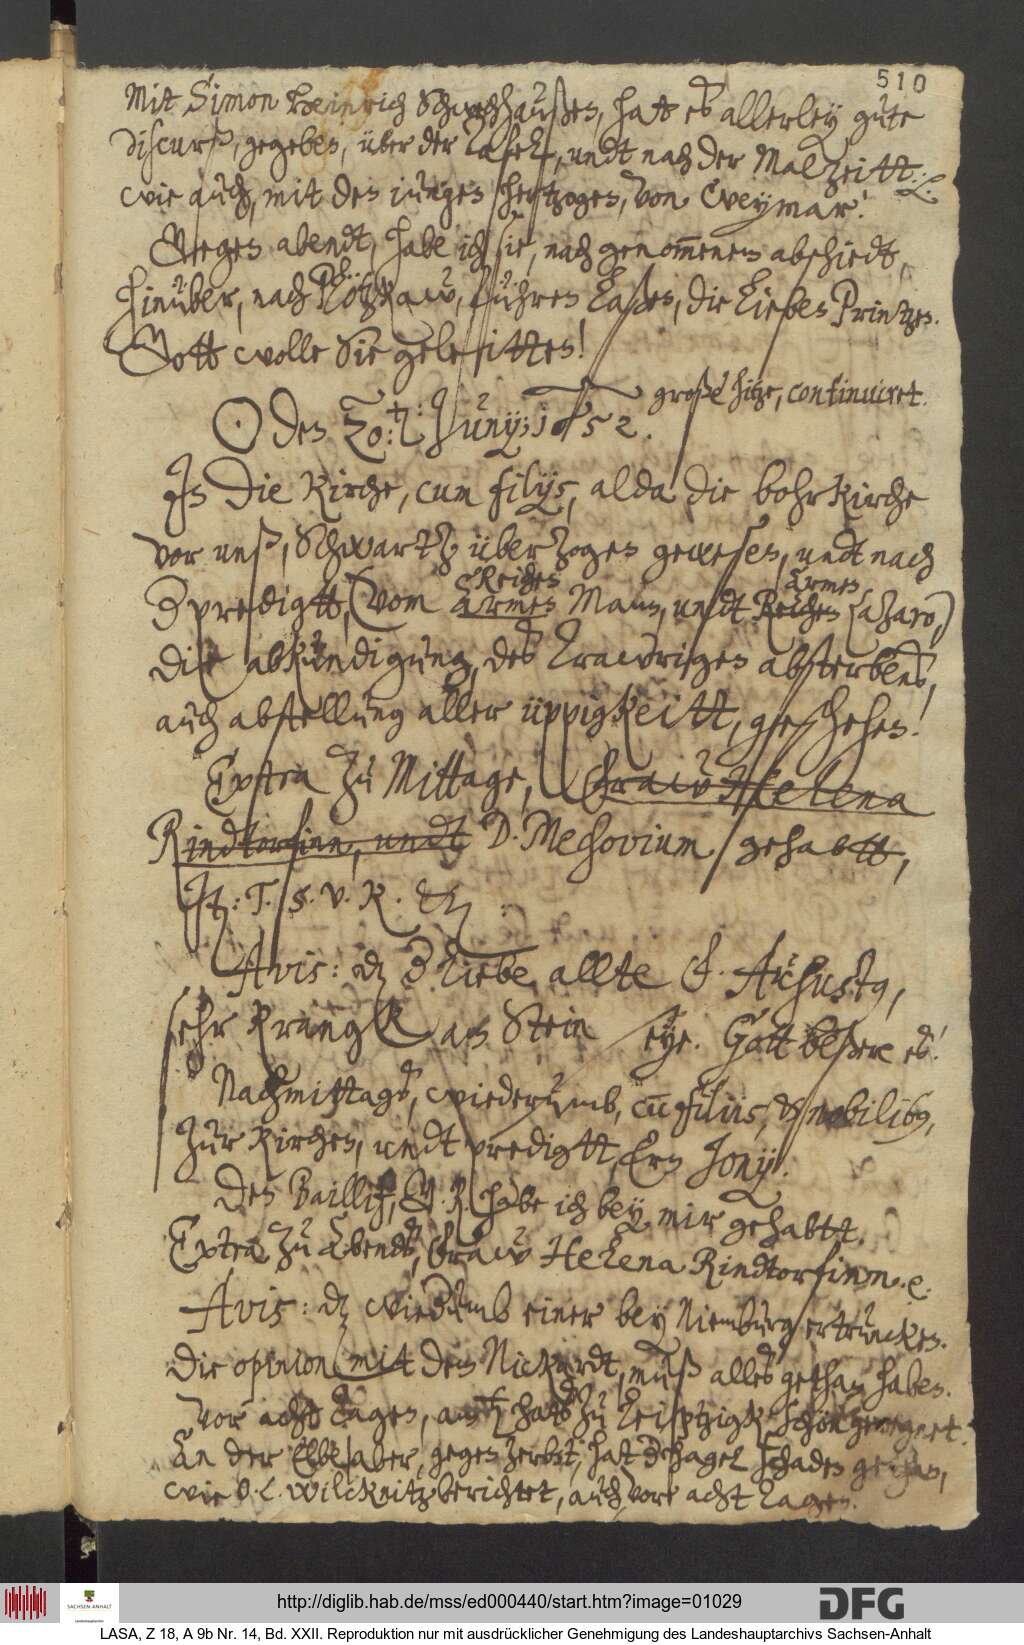 510
Mit Simon Heinrich Schwechhaußen, hatt es allerley gute
discurß, gegeben, über der Tafell, undt nach der Malzeitt.
wie auch, mit den iungen hertzogen, von Weymar!
Gegen abendt, habe ich sie, nach genommenem abschiedt,
hinüber, nach Plötzkaw, führen laßen, die lieben Printzen.
Gott wolle Sie geleitten!
große hitze, continuiret.
☉ den 20. Junij; 1652.
In die Kirche, cum filijs, alda die bohrkirche
vor unß, schwartz überzogen gewesen, undt nach
Reichen Armen
d predigtt, (vom Armen Mann, undt Reichen Lazaro,)
die abkündigung, des trawrigen absterbens,
auch abstellung aller üppigkeitt, geschehen!
Extra zu Mittage, Fraw Helena
Rindtorfinn, undt D. Mechovium gehabtt,
Avis: dz d liebe, allte F. Augustus,
sehr kranck am Stein seye. Gott beßere es!
Nachmittags, wiederumb, cum filiis, & nobilibus,
zur kirchen, undt predigtt, Ern Jonij.
Den Baillif, habe ich bey mir gehabtt.
Extra zu Abends, Fraw Helena Rindtorfinn. e.
Avis: dz wiederumb einer bey Niemburg ertruncken.
Die opinion mit dem Nickardt, muß alles gethan haben.
Vor acht tagen, hats zu Leiptzigk schön geregnet.
An der Elbe aber, gegen Zerbst, hat d hagel schaden gethan,
wie O. L. Wilcknitz berichtet, auch vor acht tagen.
http://diglib.hab.de/mss/ed000440/start.htm?image=01029
DFG
SACHSEN-ANHALT
LASA, Z 18, A 9b Nr. 14, Bd. XXII. Reproduktion nur mit ausdrücklicher Genehmigung des Landeshauptarchivs Sachsen-Anhalt